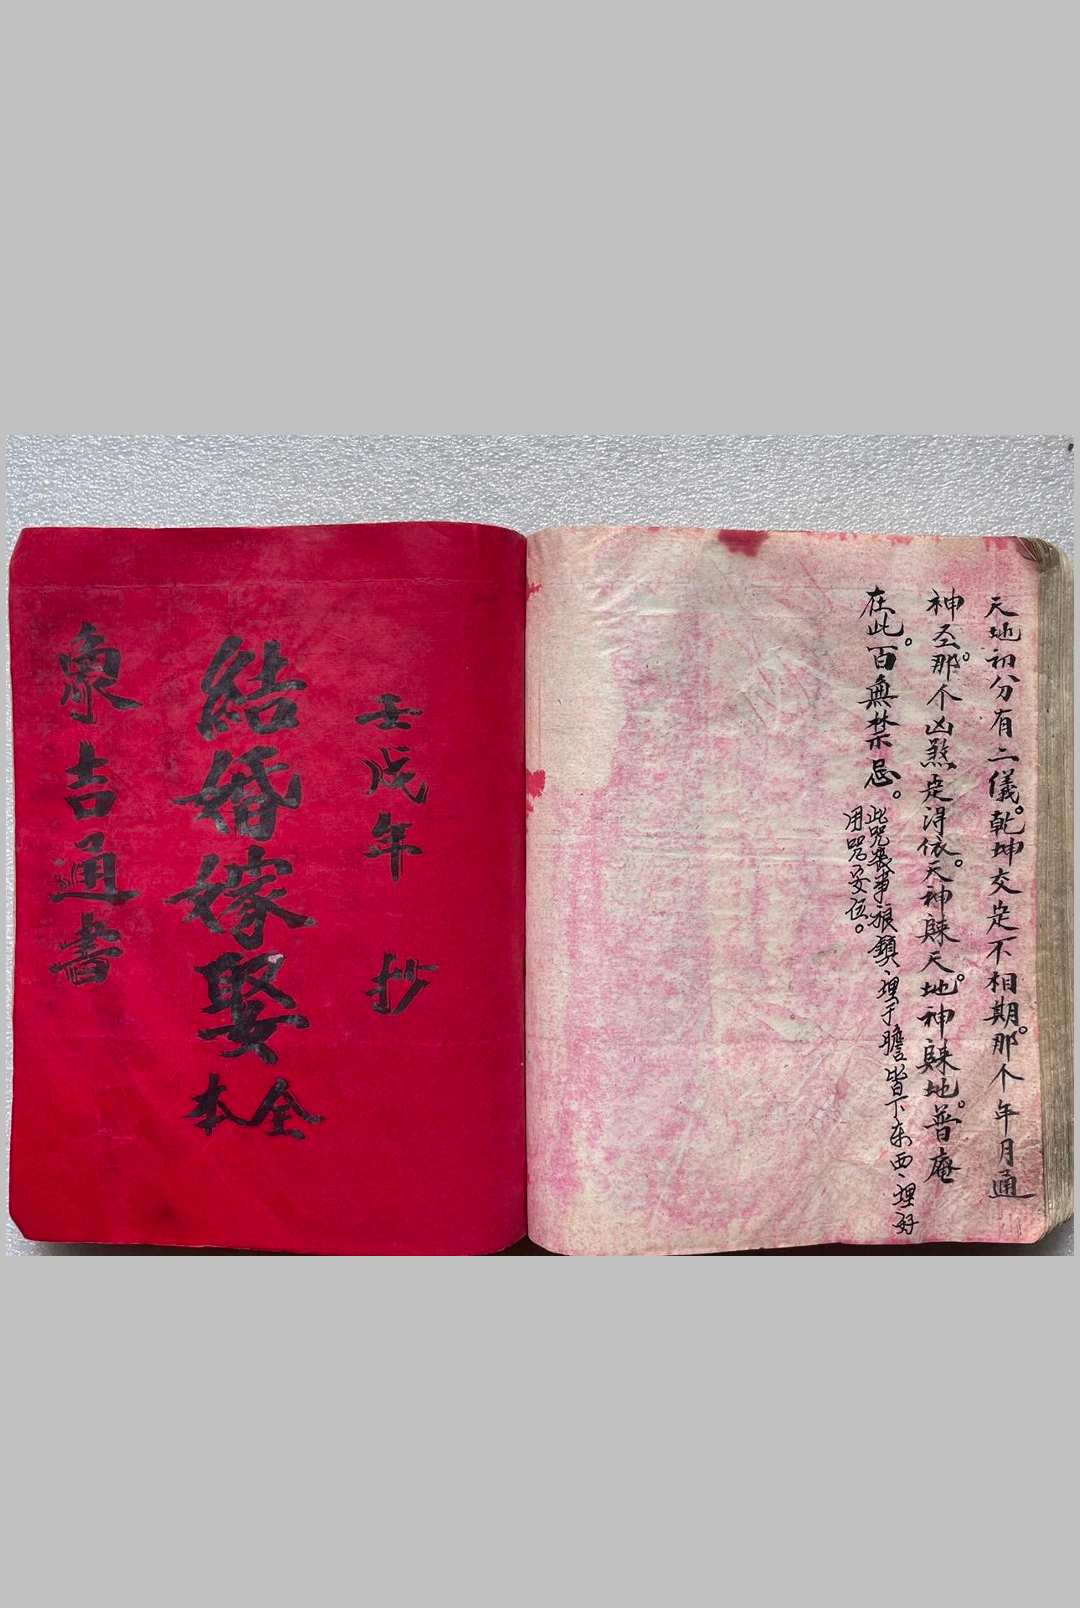 天地初分有二儀。乾坤交定不相期。那个年月通
神圣。那个凶煞定得依。天神歸天。地神歸地。普庵
在此。百無禁忌。
此咒喪事 鎮、埋 皆下东西、埋好
用咒安位。
壬戌年 抄
結婚嫁娶全本
象吉通書